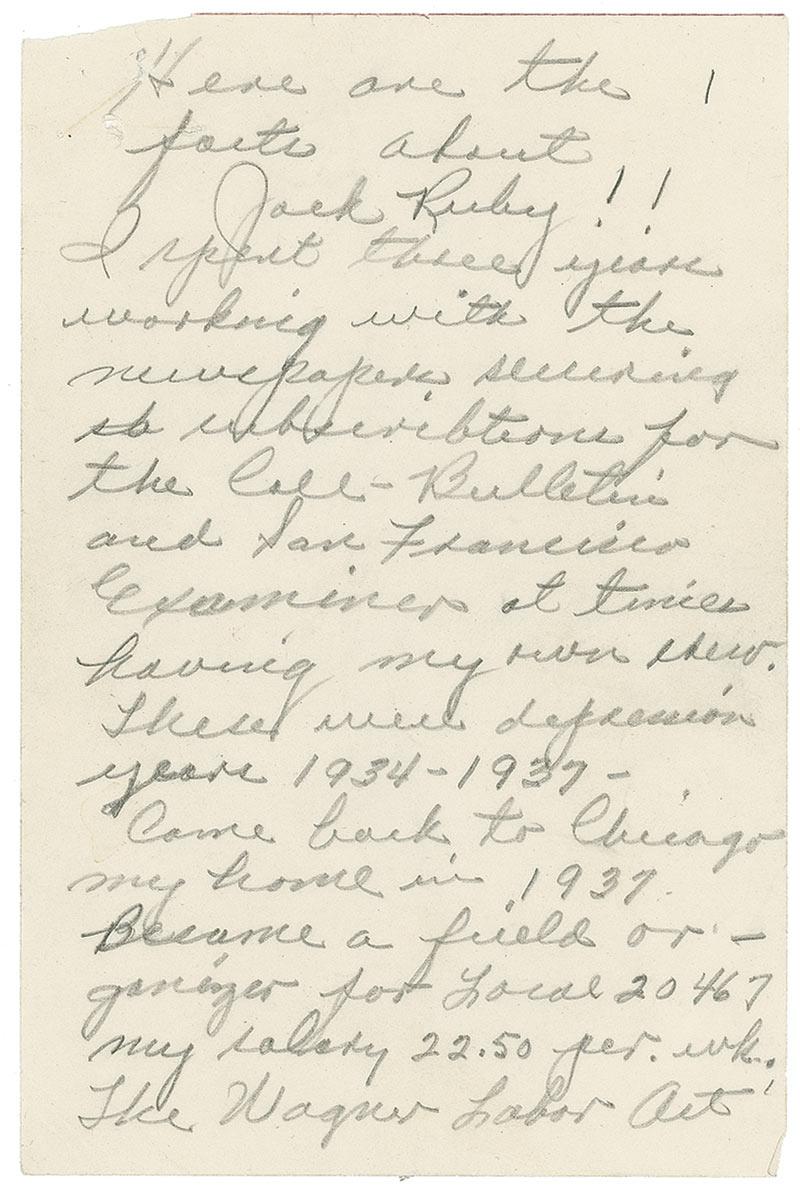 Here are the 1
facts about
Jack Ruby!!
I spent three years
working with the
newspapers securing
subscribtions for
the Call-Bulletin
and San Francisco
Examiner at times
having my own crew.
These were depression
years 1934-1937-
Came back to Chicago
my home in 1937.
Became a field or-
ganizer for Local 20467
my salary 22.50 per. wk.
The Wagner Labor Act